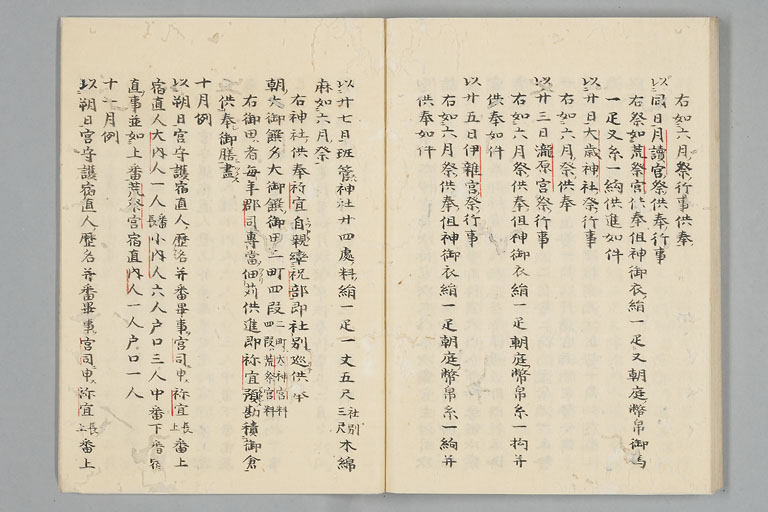 右如六月祭行事供奉
以同日月讀宮祭供奉行事
右祭如荒祭宮供奉但神御衣絹一疋又朝庭幣帛御馬
一疋又糸一絇供進如件
以廿日大歳神社祭行事
右如六月祭供奉
以廿三日瀧原宮祭行事
右如六月祭供奉但神御衣絹一疋朝庭幣帛糸一絇并
供奉如件
以廿五日伊雜宮祭行事
右如六月祭供奉但神御衣絹一疋朝庭幣帛糸一絇并
供奉如件
以廿七日班管神社廿四處料絹一疋一丈五尺社別三尺木綿
麻如六月祭
右神社供奉祢宜自親率祝部即社別巡供奉
朝夕御饌夕大御饌御田二町四段二町大神宮料四段荒祭宮料
右御田者毎年郡司專當佃苅供進即祢宜預勘積御倉
供奉御膳盡
十月例
以朔日宮守護宿直人歴名并番畢事宮司申祢宜長上番上
宿直人大内人一人番小内人六人戸口三人中番下番宿
直事並如上番荒祭宮宿直内人一人戸口一人
十一月例
以朔日宮守護宿直人歴名并番畢事宮司申祢宜長上番上